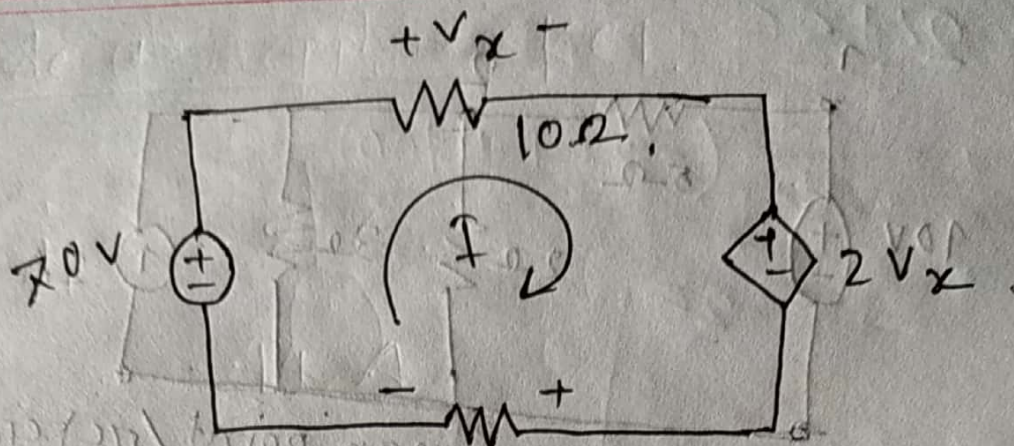 + Vx -
10Ω.
70 V
+
-
I
+
-
2 Vx.
- +